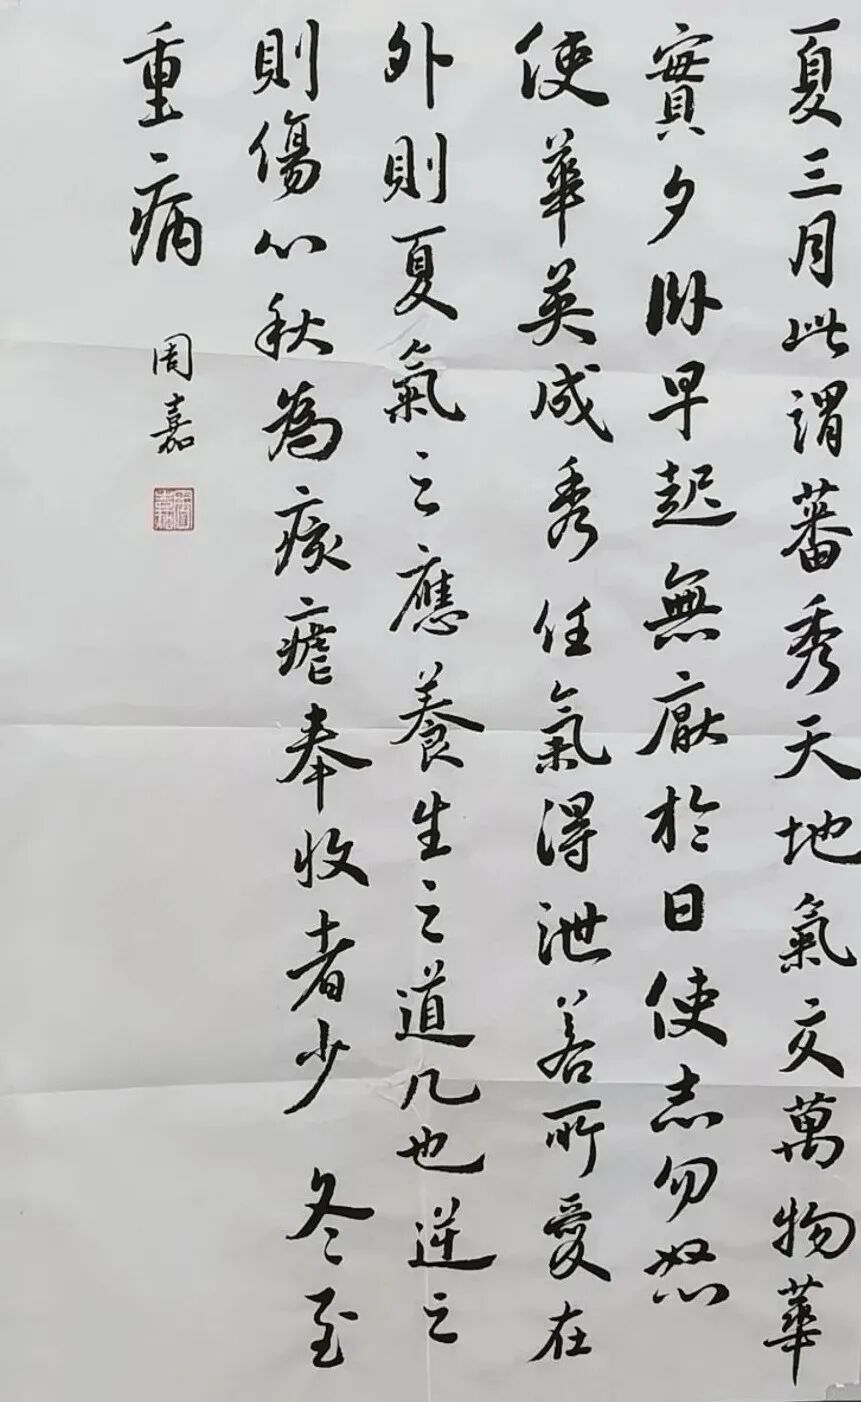 夏三月此謂蕃秀天地氣交萬物華
實夕卧早起無厭於日使志勿怒
使華英成秀任氣得泄若所愛在
外則夏氣之應養生之道几也逆之
則傷心秋為痎瘧奉收者少 冬至
重病
周嘉